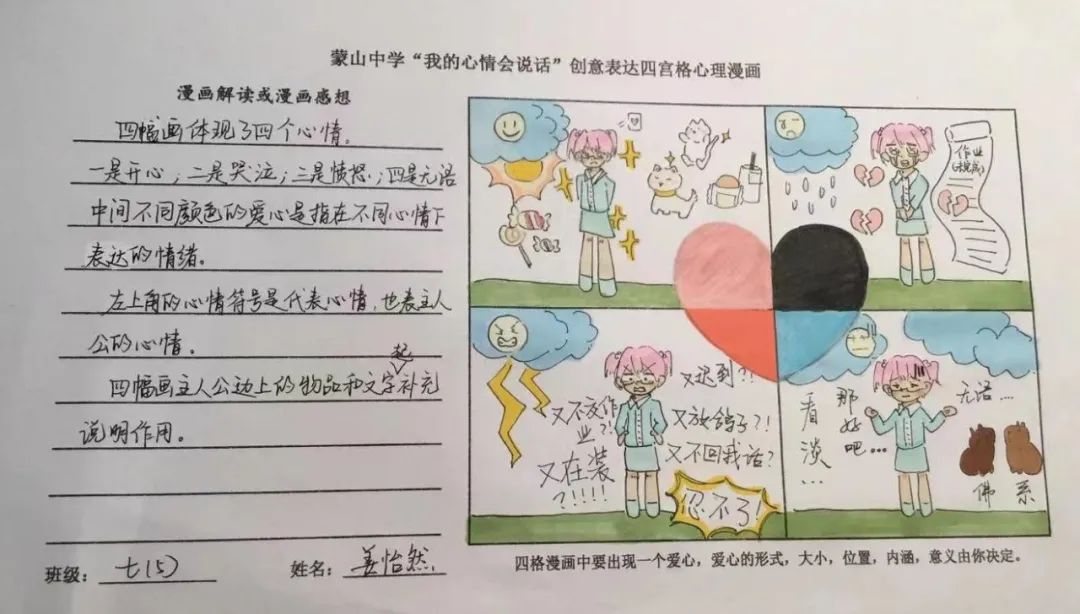 蒙山中学“我的心情会说话”创意表达四宫格心理漫画
漫画解读或漫画感想
四幅画体现了四个心情。
一是开心；二是哭泣；三是愤怒；四是无语
中间不同颜色的爱心是指在不同心情下
表达的情绪。
左上角的心情符号是代表心情，也表主人
公的心情。
四幅画主人公边上的物品和文字起补充
说明作用。
班级：七(5)
姓名：姜怡然
作业
又不交作
业？！
又在装
？！！！！
又迟到？！！
又放鸽子？！
又不回我话？
忍不了！
看淡…
那好吧…
无语…
佛系
四格漫画中要出现一个爱心，爱心的形式，大小，位置，内涵，意义由你决定。